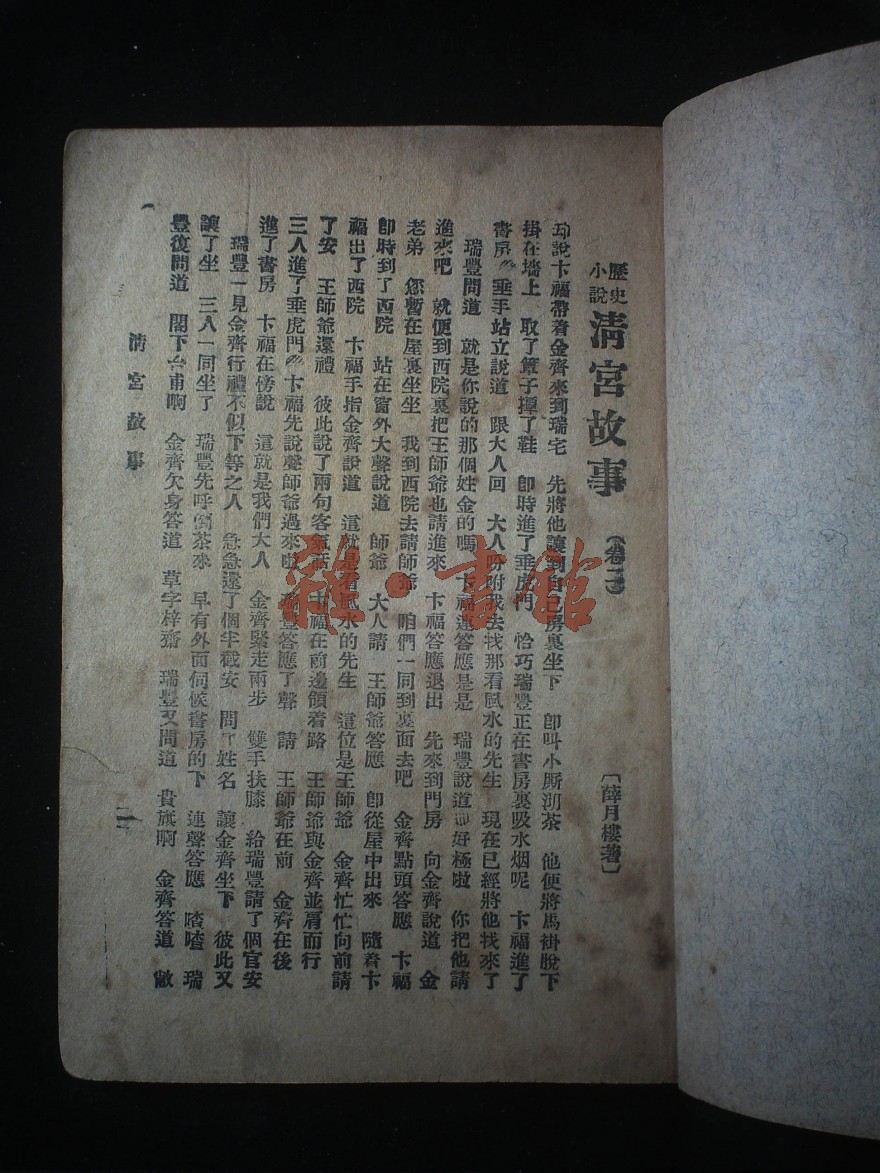 歷史小說
清宮故事
〔薛月樓著〕
却說卞福帶着金齊來到瑞宅 先將他讓到自己房裏坐下 卽叫小厮沏茶 他便將馬褂脫下
掛在墻上 取了箪子撢了鞋 卽時進了垂虎門 恰巧瑞豐正在書房裏吸水烟呢 卞福進了
書房 垂手站立說道 跟大人回 大人吩咐我去找那看風水的先生 現在已經將他找來了
瑞豐問道 就是你說的那個姓金的嗎 卞福連答應是是 瑞豐說道 好極啦 你把他請
進來吧 就便到西院裏把王師爺也請進來 卞福答應退出 先來到門房 向金齊說道 金
老弟 您暫在屋裏坐坐 我到西院去請師爺 咱們一同到裏面去吧 金齊點頭答應 卞福
卽時到了西院 站在窗外大聲說道 師爺 大人請 王師爺答應 卽從屋中出來 隨着卞
福出了西院 卞福手指金齊說道 這就是看風水的先生 這位是王師爺 金齊忙忙向前請
了安 王師爺還禮 彼此說了兩句客氣話 卞福在前邊領着路 王師爺與金齊並肩而行
三人進了垂虎門 卞福先說聲師爺過來啦 瑞豐答應了聲 請 王師爺在前 金齊在後
進了書房 卞福在傍說 這就是我們大人 金齊緊走兩步 雙手扶膝 給瑞豐請了個官安
瑞豐一見金齊行禮不似下等之人 急急還了個半截安 問了姓名 讓金齊坐下 彼此又
讓了坐 三人一同坐了 瑞豐先呼倒茶來 早有外面伺候書房的下 連聲答應 喳喳 瑞
豐復問道 閣下台甫啊 金齊欠身答道 草字梓齋 瑞豐又問道 貴旗啊 金齊答道 敝
清宮故事
一
雜·書館